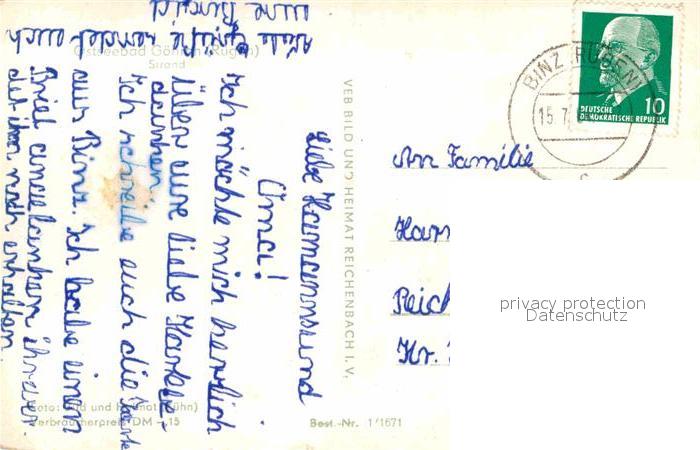 Ostseebad Göhren (Rügen)
Strand
Liebe Hamanns und
Oma!
Ich möchte mich herzlich
über eure liebe Karte
danken.
Ich schreibe euch die Karte
aus Binz. Ich habe einen
Brief
der ihm noch erhalten.
Viele Grüße sendet euch
eure
VEB BILD UND HEIMAT REICHENBACH I. V.
Foto: Bild und Heimat (Kühn)
Verbraucherpreis DM -,15
Best.-Nr. 1/1671
BINZ (RÜGEN)
15.7.
c
DEUTSCHE
DEMOKRATISCHE REPUBLIK
10
An Familie
Ham
Reich
Kr.
privacy protection
Datenschutz